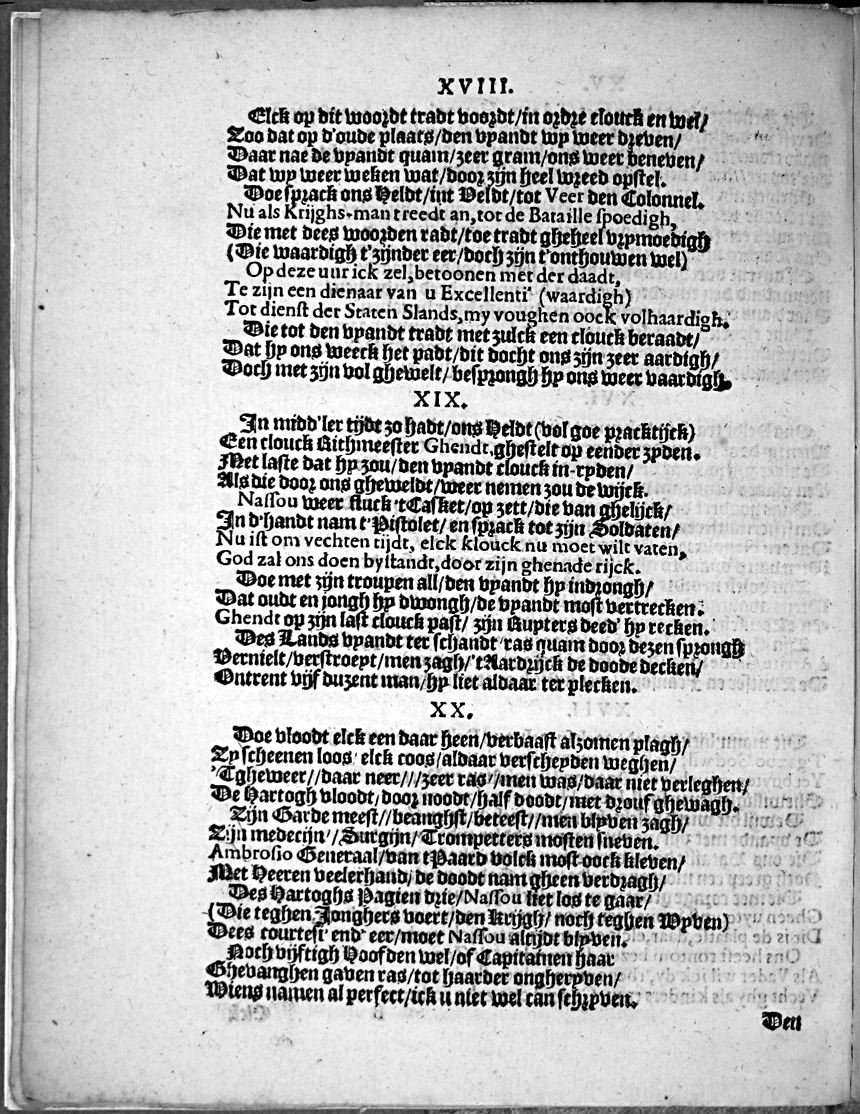 XVIII.
Elck op dit woordt tradt voordt/in ordre clouck en wel/
Zoo dat op d'oude plaats/den vyandt wy weer dreven/
Daar nae de vyandt quam/zeer gram/ons weer beneven/
Dat wy weer weken wat/door zijn heel wreed opstel.
Doe sprack ons Heldt/int Veldt/tot Veer den Colonnel.
Nu als Krijghs-man treedt an, tot de Bataille spoedigh,
Die met dees woorden radt/toe tradt gheheel vrymoedigh
(Die waardigh t'zijnder eer/doch zijn t'onthouwen wel)
Op deze uur ick zel, betoonen met der daadt,
Te zijn een dienaar van u Excellenti' (waardigh)
Tot dienst der Staten Slands, my voughen oock volhaardigh.
Die tot den vyandt tradt met zulck een clouck beraadt/
Dat hy ons weeck het padt/dit docht ons zijn zeer aardigh/
Doch met zijn vol ghewelt/besprongh hy ons weer vaardigh.
XIX.
In midd'ler tijdt zo hadt/ons Heldt (vol goe pracktijck)
Een clouck Rithmeester Ghendt, ghestelt op eender zyden.
Met laste dat hy zou/den vyandt clouck in-ryden/
Als die door ons gheweldt/weer nemen zou de wijck.
Nassou weer fluck 't Casket/op zett/die van ghelijck/
In d'handt nam t'Pistolet/en sprack tot zijn Soldaten/
Nu ist om vechten tijdt, elck klouck nu moet wilt vaten,
God zal ons doen bystandt, door zijn ghenade rijck.
Doe met zijn troupen all/den vyandt hy indrongh/
Dat oudt en jongh hy dwongh/de vyandt most vertrecken.
Ghendt op zijn last clouck past/zijn Ruyters deed' hy recken.
Des Lands vyandt ter schandt/ras quam door dezen sprongh
Vernielt/verstroeyt/men zagh/'t Aardrijck de doode decken/
Ontrent vijf duzent man/hy liet aldaar ter plecken.
XX.
Doe vloodt elck een daar heen/verbaast alzomen plagh/
Zy scheenen loos/elck coos/aldaar verscheyden weghen/
'Tgheweer//daar neer///zeer ras//men was/daar niet verleghen/
De Hartogh vloodt/door noodt/half doodt/met drouf ghewagh.
Zijn Garde meest//beanghst/beteest//men blyven zagh/
Zijn medecijn'//Surgijn/Trompetters mosten sneven.
Ambrosio Generaal/van t'Paard volck most oock kleven/
Met Heeren veelerhand/de doodt nam gheen verdragh/
Des Hartoghs Pagien drie/Nassou liet los te gaar/
(Die teghen Jonghers voert/den Krijgh/noch teghen Wyven)
Dees courtesi' end' eer/moet Nassou altijdt blyven.
Noch vijftigh Hoofden wel/of Capitainen haar
Ghevanghen gaven ras/tot haarder ongheryven/
Wiens namen al perfect/ick u niet wel can schryven.
Den